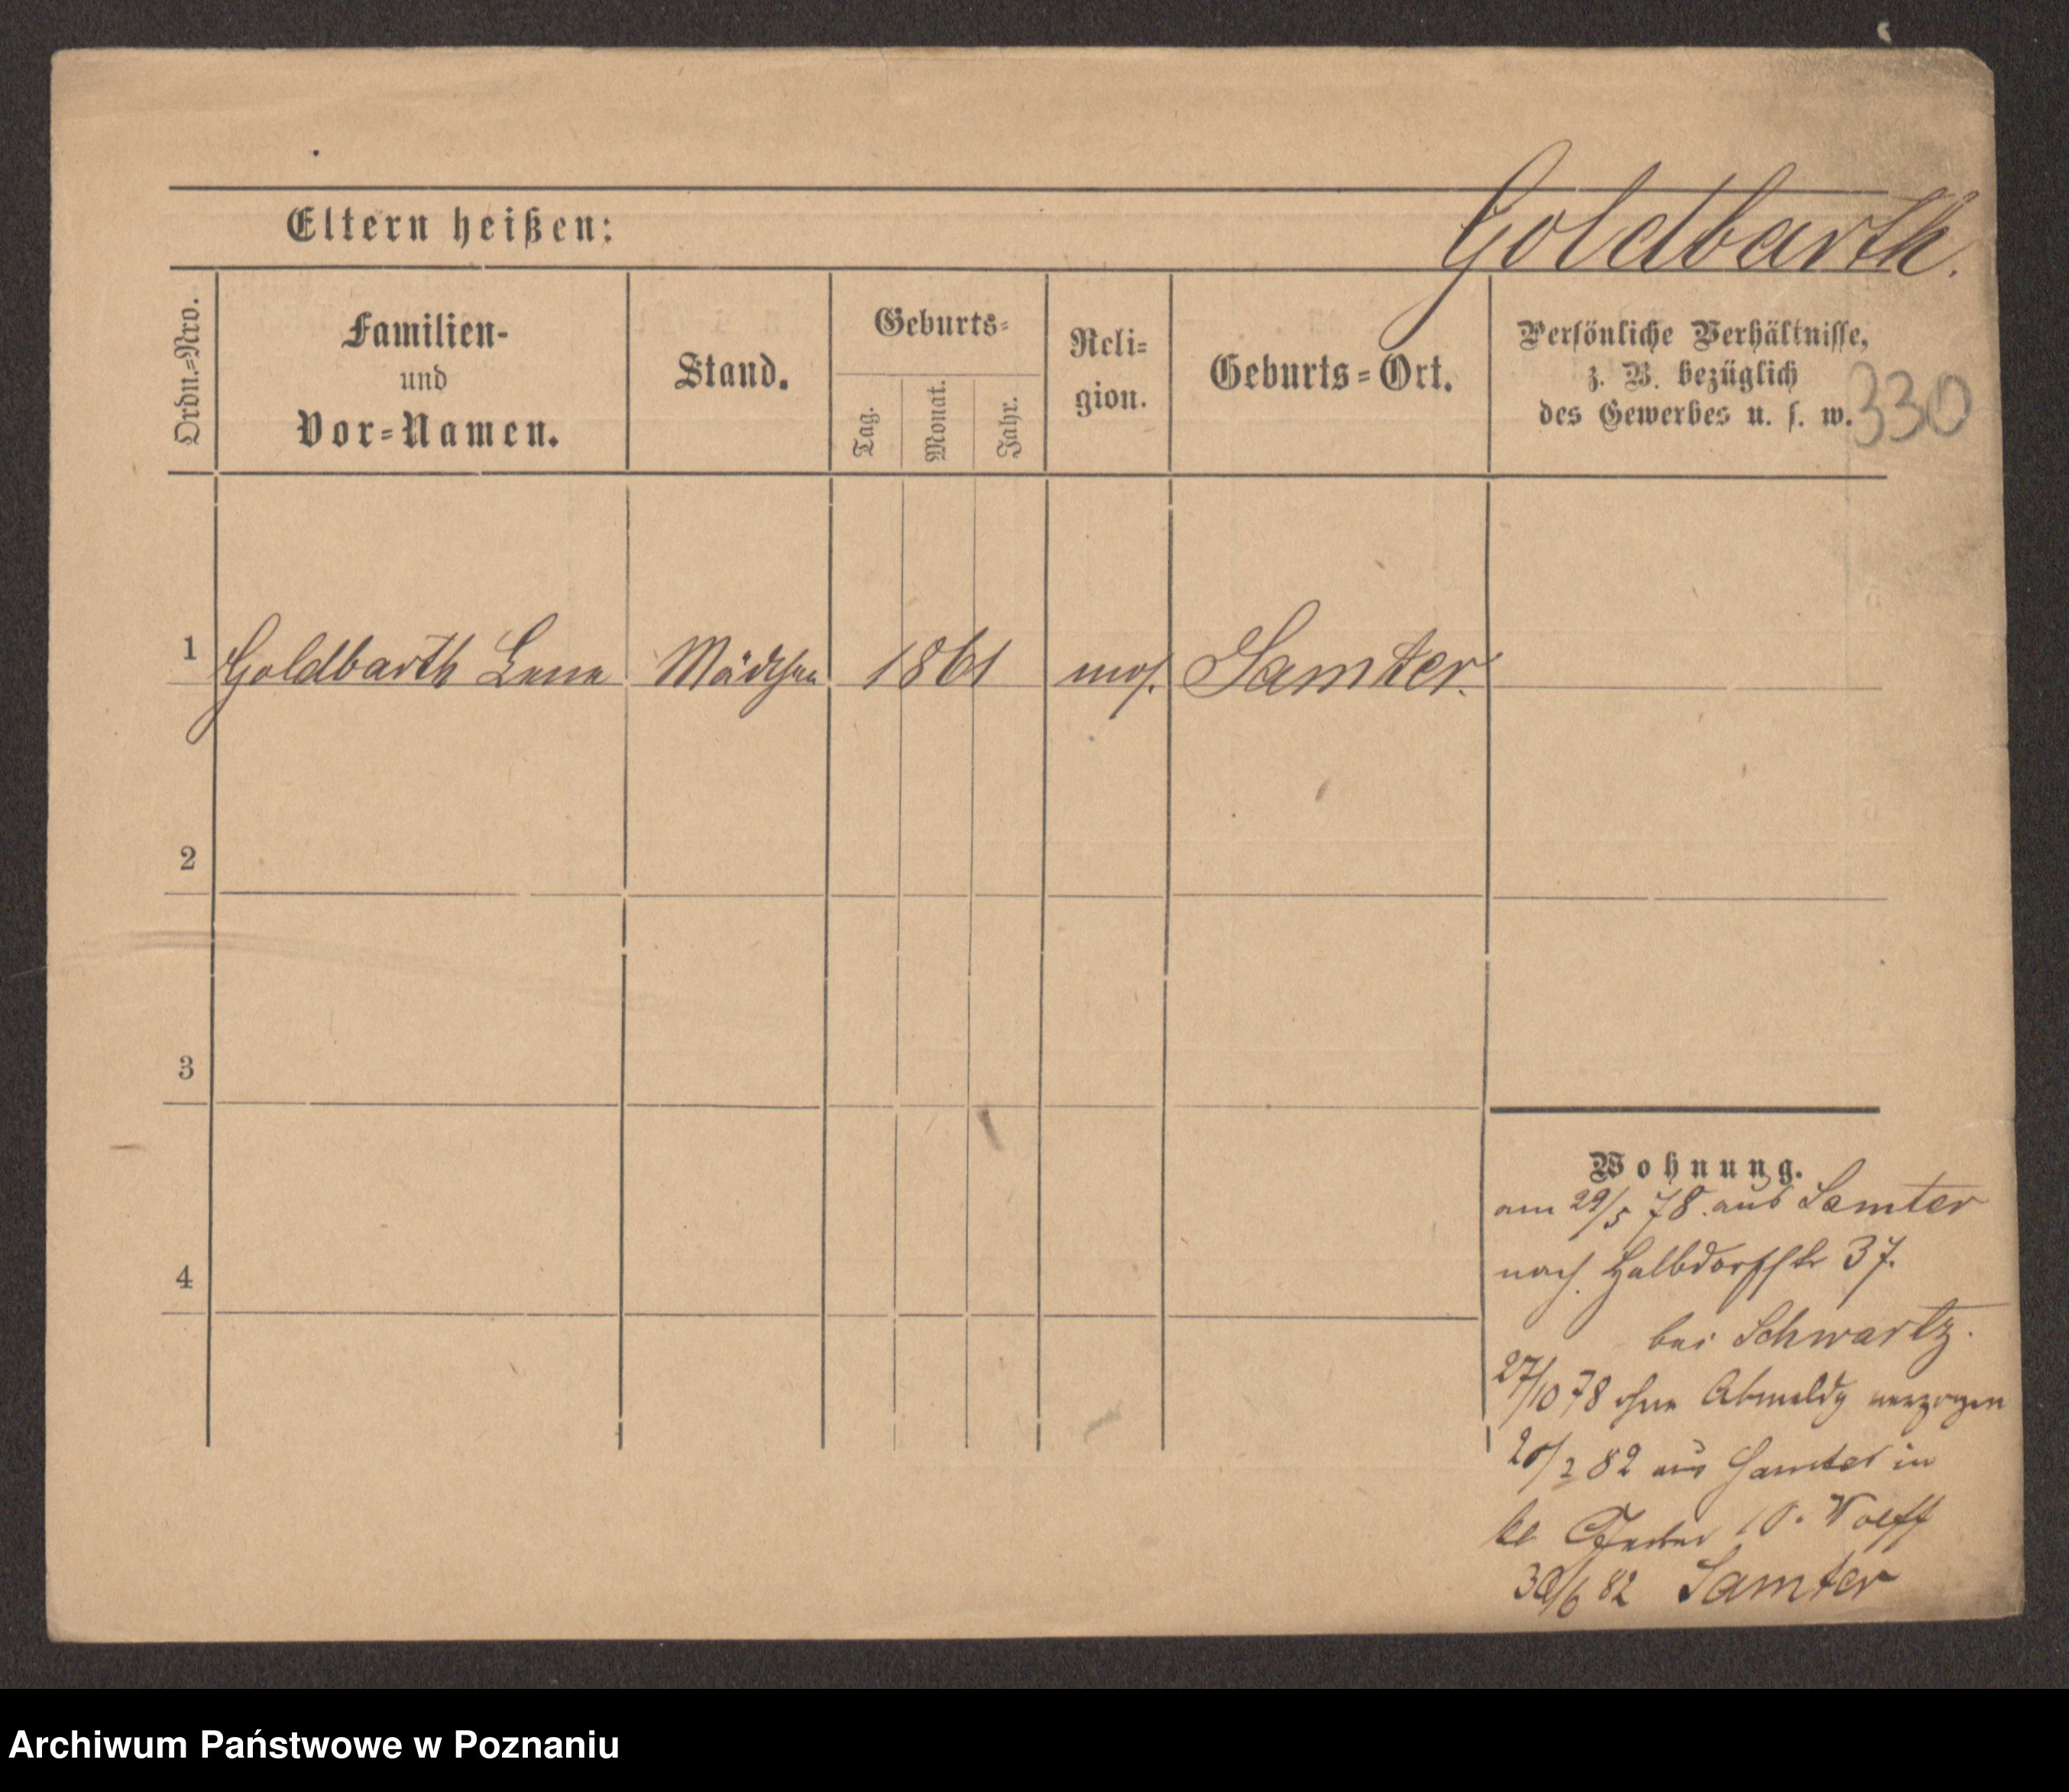 Goldbarth.
Eltern heißen:
Ordn.=Nro.
Familien-
und
Vor=Namen.
Stand.
Geburts=
Tag.
Monat.
Jahr.
Reli=
gion.
Geburts=Ort.
Persönliche Verhältnisse,
z. B. bezüglich
des Gewerbes u. s. w.
330
1 Goldbarth Lene Mädchen 1861 mos. Samter.
2
3
4
Wohnung.
am 29/5 78. aus Samter
nach Halbdorfstr 37.
bei Schwartz.
27/10 78 ohne Abmeldg verzogen
20/2 82 aus Samter in
kl 10. Wolff
30/6 82 Samter
Archiwum Państwowe w Poznaniu